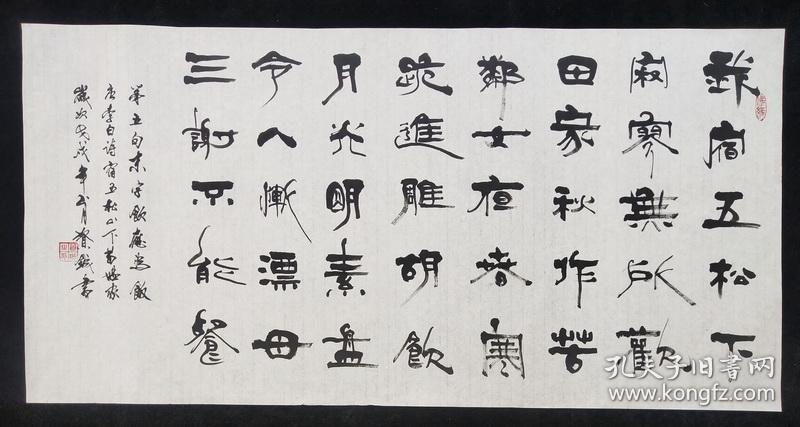 我宿五松下
寂寥無所歡
田家秋作苦
鄰女夜舂寒
跪進雕胡飲
月光明素盘
令人慚漂母
三謝不能餐
第五句末字飲應為飯
唐李白詩宿五松山下荀媼家
歲次戊戌年五月書
孔夫子旧書网
www.kongfz.com